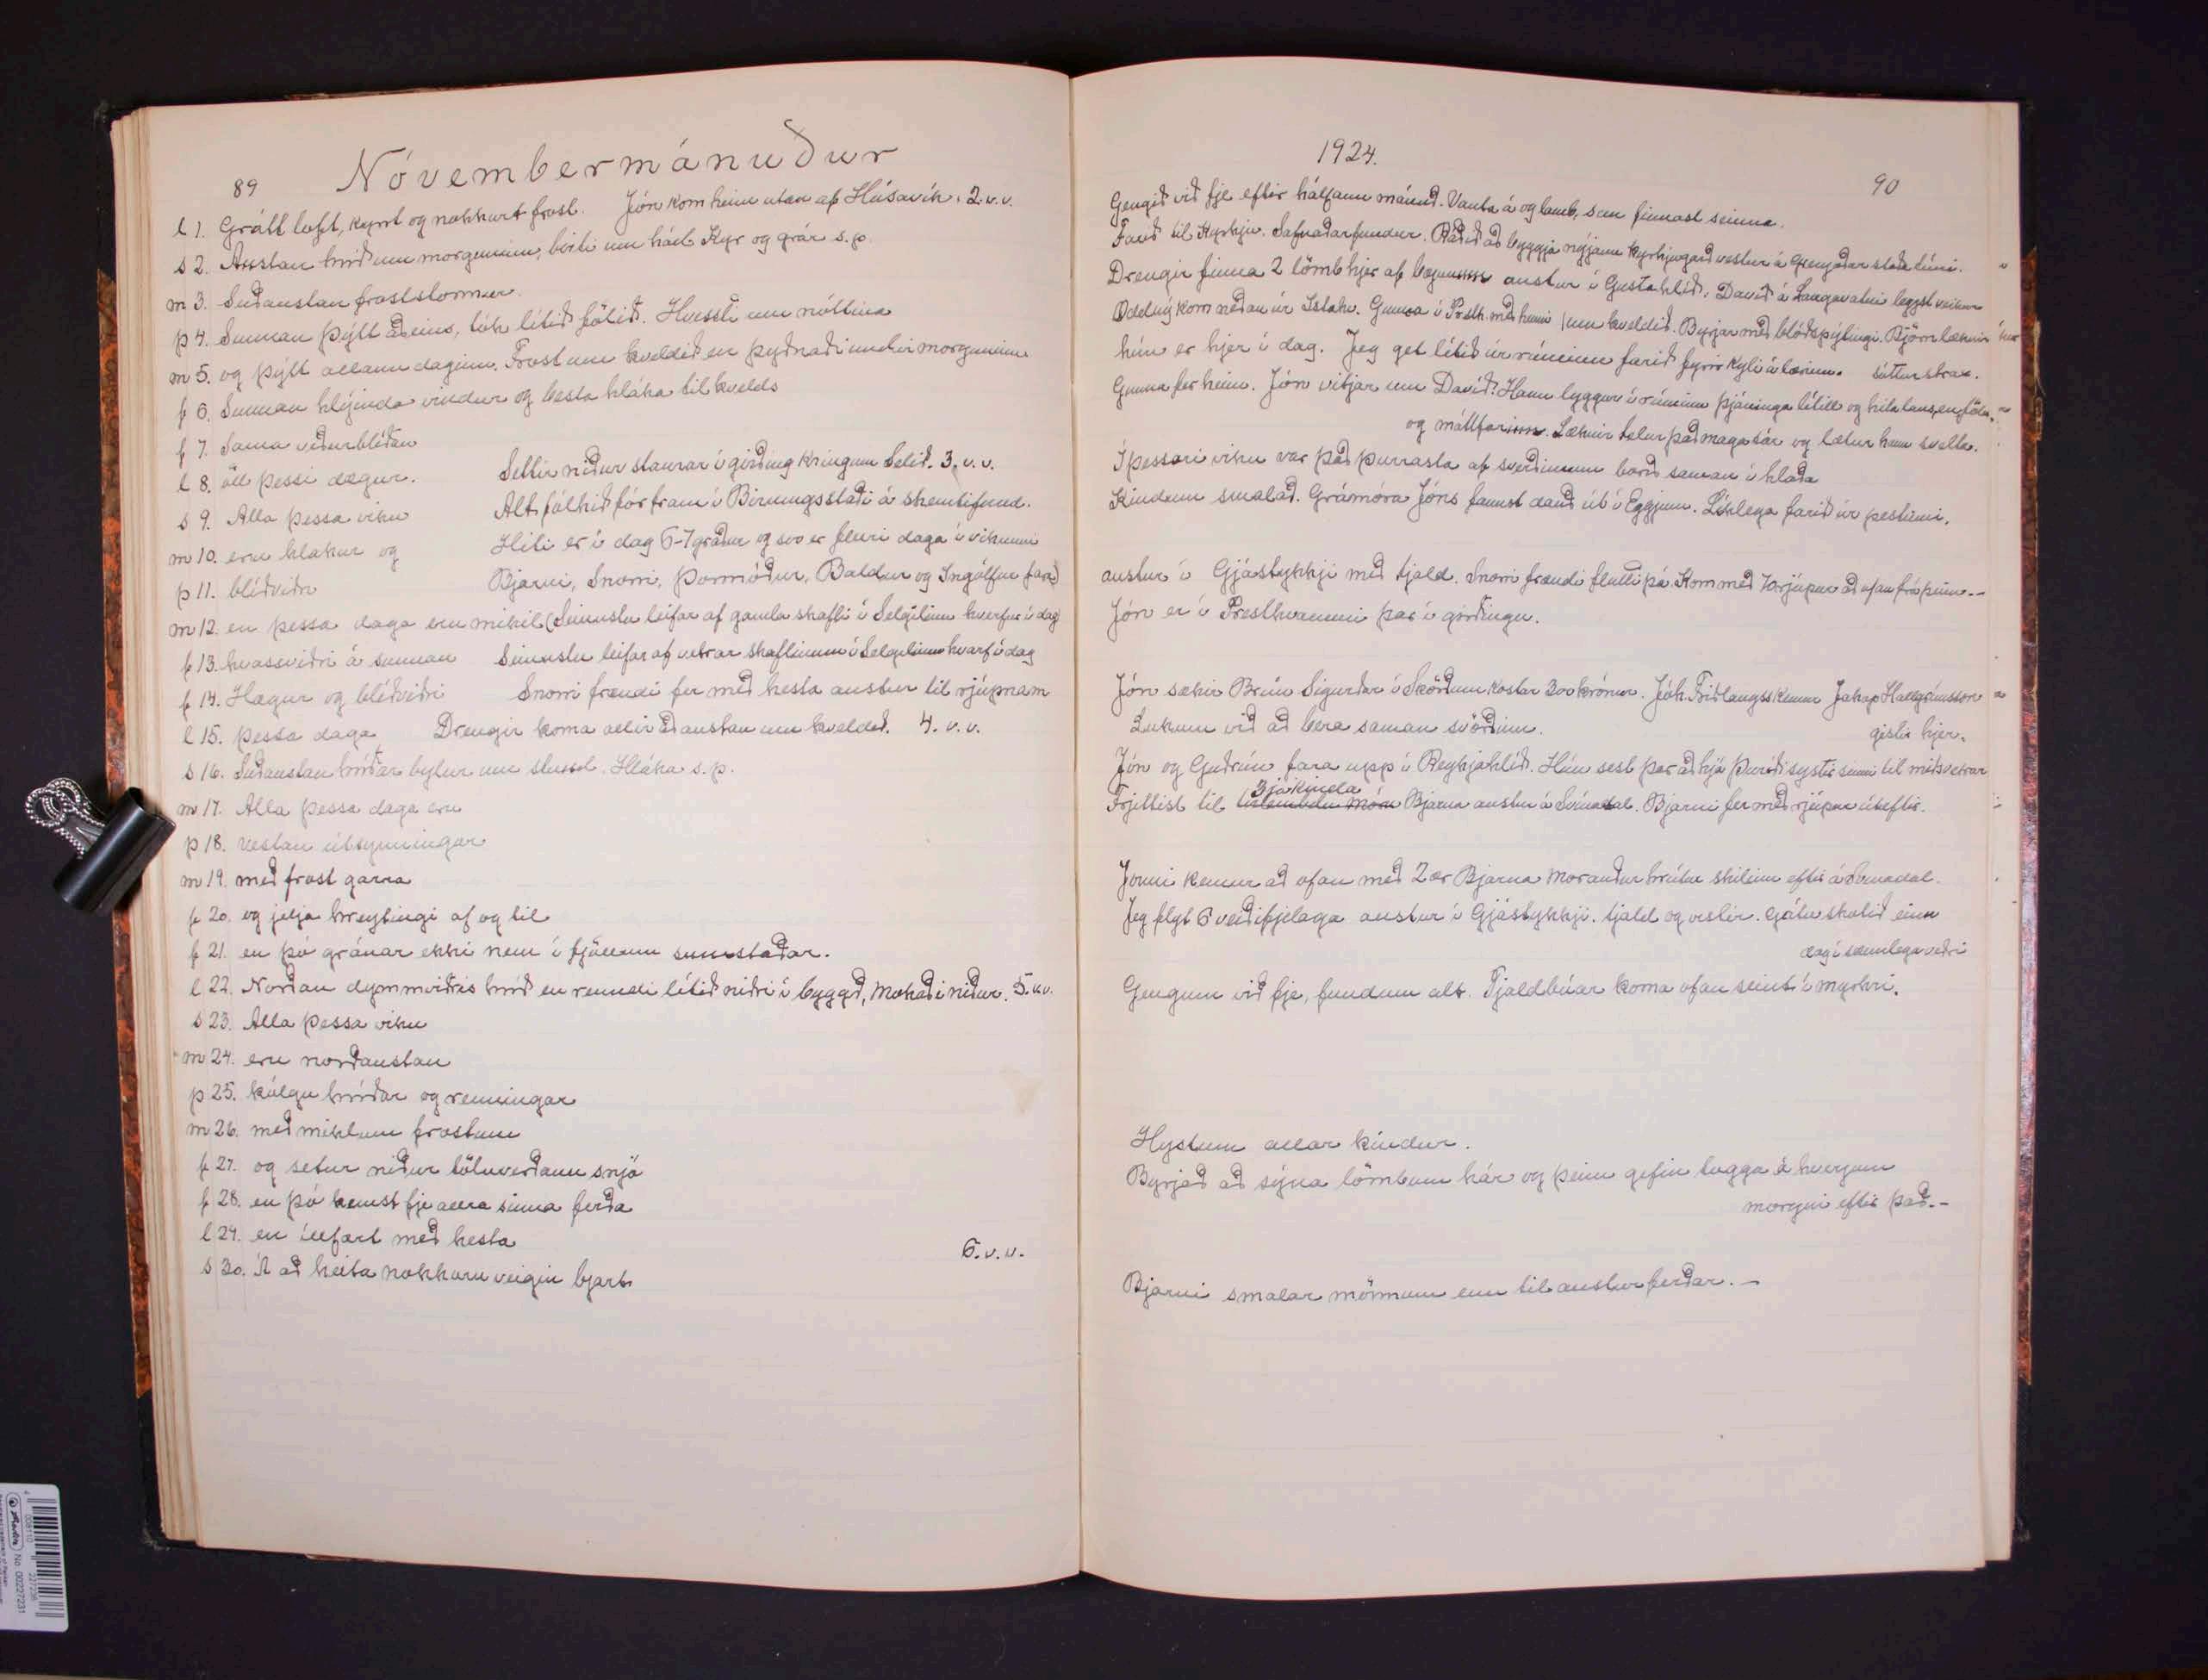 89
Nóvembermánuður
l 1. Grátt loft, kyrrt og nokkurt frost. Jón kom heim utan af Húsavík. 2. v. v.
s 2. Austan hríð um morguninn, birti um hád. Kyr og grár s. p.
m 3. Suðaustan froststormur.
þ 4. Sunnan þýtt aðeins, tók lítið fölið. Hvessti um nóttina
m 5. og þýtt allann daginn. Frost um kveldið en þyðnaði undir morguninn
f 6. Sunnan hlýinda vindur og besta hláka til kvelds
f 7. Sama veðurblíðan
l 8. öll þessi dægur. Settir niður staurar í girðing kringum Selið. 3. v. v.
s 9. Alla þessa viku Alt fólkið fór fram í Birningsstaði á skemtifund.
m 10. eru hlákur og Hiti er í dag 6-7 gráður og svo er fleiri daga í vikunni
þ 11. blíðviðri Bjarni, Snorri, Þormóður, Baldur og Ingólfur fara
m 12. en þessa daga eru mikil (Seinustu leifar af gamla skafli í Selgilinu hverfur í dag
f 13. hvassviðri á sunnan Seinustu leifar af vetrar skaflinum í Selgilinu hvarf í dag
f 14. Hægur og blíðviðri Snorri frændi fer með hesta austur til rjúpnam
l 15. þessa daga Drengir koma allir að austan um kveldið. 4. v. v.
s 16. Suðaustan hríðar bylur um stund. Hláka s. p.
m 17. Alla þessa daga eru
þ 18. vestan útsynningar
m 19. með frost garra
f 20. og jelja hreytingi af og til
f 21. en þó gránar ekki nem í fjöllum sumstaðar.
l 22. Norðan dymmviðris hríð en renndi lítið niðri í byggð, mokaði niður. 5. v. v.
s 23. Alla þessa viku
m 24. eru norðaustan
þ 25. kólgu hríðar og renningar
m 26. með miklum frostum
f 27. og setur niður töluverðann snjó
f 28. en þó kemst fje allra sinna ferða
l 29. en illfært með hesta 6. v. v.
s 30. Á að heita nokkurn veigin bjart
1924.
90
Gengið við fje eftir hálfann mánuð. Vanta á og lamb, sem finnast seinna.
Farið til Kyrkju. Safnaðarfundur. Ráðið að byggja nýjann kyrkjugarð vestur á Grenjaðar staða túni.
Drengir finna 2 lömb hjer af bæjunum austur í Gustahlíð. Davíð á Laugavatni leggst veikur
Oddný kom neðan úr Ístak. Gunna í Presth. með henni um kveldið. Byrjar með blóðspýtingi. Björn læknir
hún er hjer í dag. Jeg get lítið úr rúminu farið fyrir kyli á lærinu. sóttur strax.
Gunna fer heim. Jón vitjar um Davíð. Hann lyggur í rúminu þjáninga lítill og hita laus, en fölur
og máttfarinn. Læknir telur það magasár og lætur hann svelta.
Í þessari viku var það þurrasta af sverðinum borið saman í hlaða
Kindum smalað. Grámóra Jóns fannst dauð út í Eggjum. Líklega farið úr pestinni.
austur í Gjástykkji með tjald. Snorri frændi flutti þá. Kom með rjúpur að ofan frá þeim.-
Jón er í Presthvammi þar í girðingu.
Jón sækir Brún Sigurðar í Skörðum kostar 300 krónur. Jóh. Friðlaugss. kemur Jakop Hallgrímsson
Lukum við að bera saman svörðinn. gistir hjer.
Jón og Guðrún fara upp í Reykjahlíð. Hún sest þar að hjá Þuríði systir sinni til miðsvetrar
3ja kinda
Frjettist til Bjarna austur á Svínadal. Bjarni fer með rjúpur úteftir.
Jonni kemur að ofan með 2 ær Bjarna Morauður hrútur skilinn eftir á Svínadal.
Jeg flyt 6 veiðifjelaga austur í Gjástykkji. tjald og vistir. Gátu skotið einn
dag í sæmilega veðri
Gengum við fje, fundum alt. Tjaldbúar koma ofan seint í myrkri.
Hystum allar kindur.
Byrjað að sýna lömbum hár og þeim gefin tugga á hverjum
morgni eftir það.-
Bjarni smalar mönnum enn til austurferðar.-